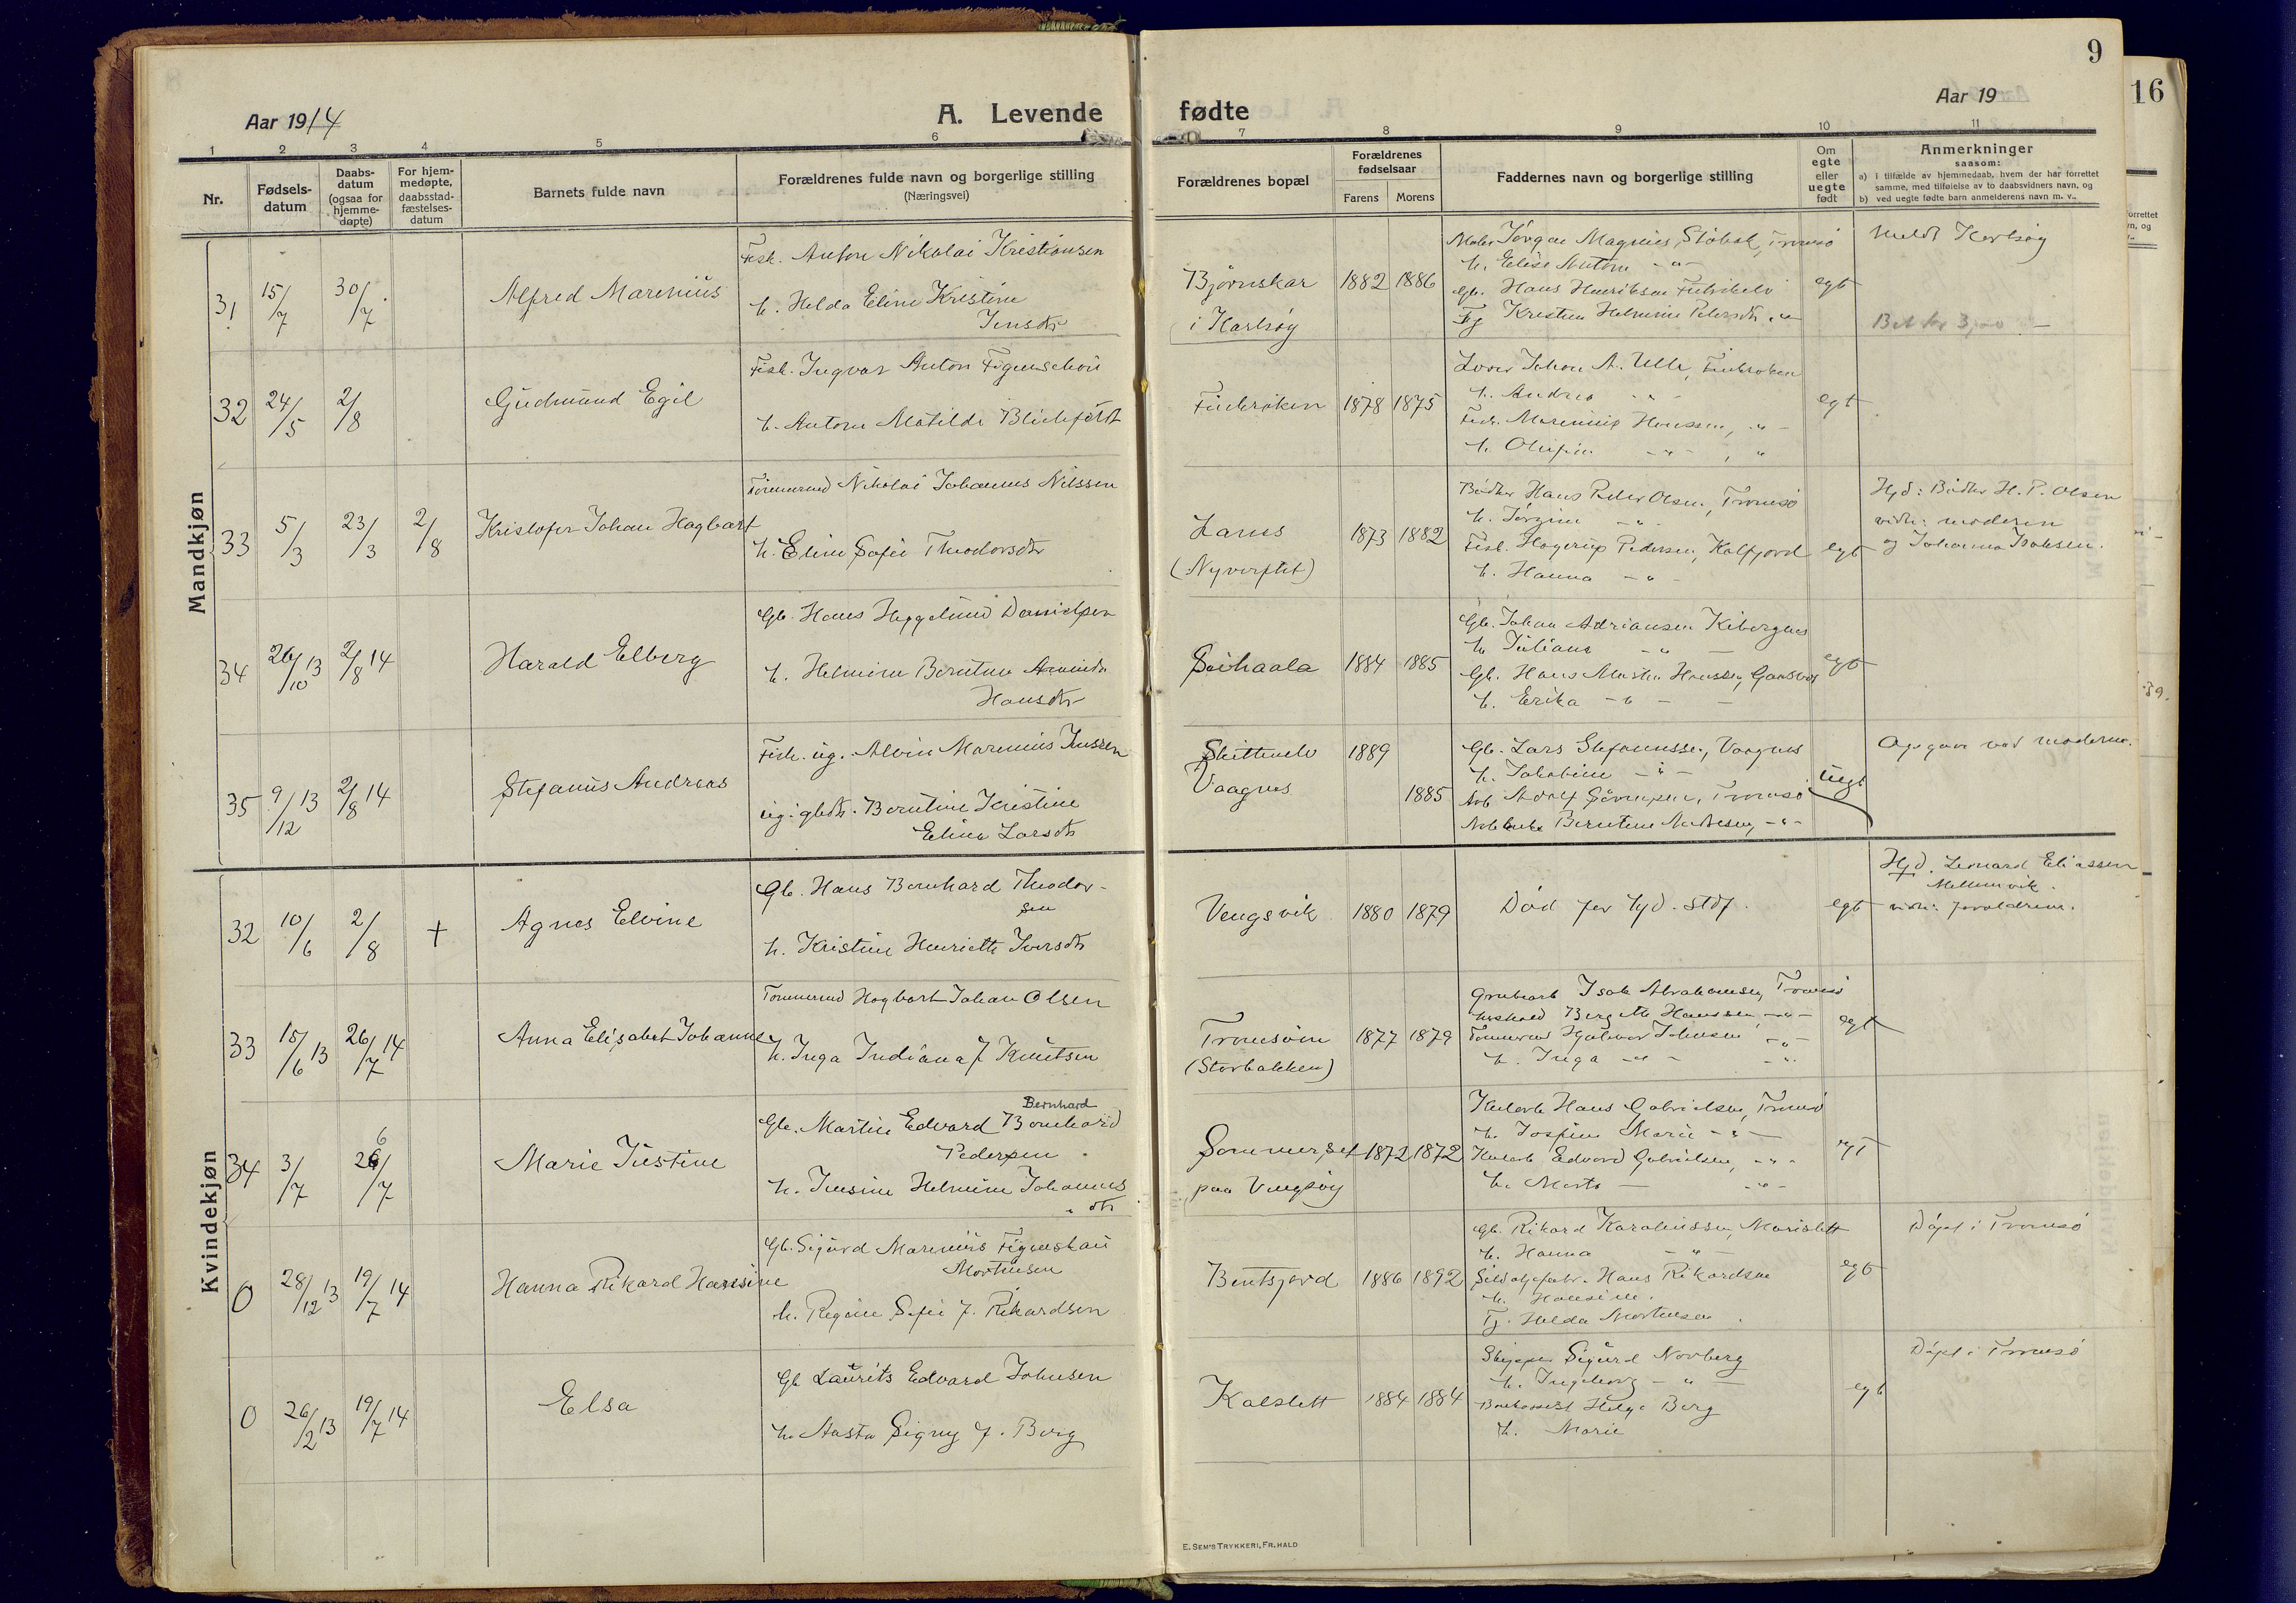 9
16
Aar 1914
A. Levende
fødte
Aar 19
1 2 3 4 5 6 7 8 9 10 11
Nr.
Fødsels-
datum
Daabs-
datum
(ogsaa for
hjemme-
døpte)
For hjem-
medøpte,
daabsstad-
fæstelses-
datum
Barnets fulde navn
Forældrenes fulde navn og borgerlige stilling
(Næringsvei)
Forældrenes bopæl
Forældrenes
fødselsaar
Farens Morens
Faddernes navn og borgerlige stilling
Om
egte
eller
uegte
født
Anmerkninger
saasom:
a) i tilfælde av hjemmedaab, hvem der har forrettet
samme, med tilføielse av to daabsvidners navn, og
b) ved uegte fødte barn anmelderens navn m. v..
Mandkjøn
31
15/7
30/7
Alfred Marenius
Fisk. Anton Nikolai Kristiansen
h. Helda Eline Kristine
Jensdtr
Bjørnskar
i Karlsøy
1882 1886
Jørgen Magnus
h. Elise Antone - " -
Gb. Hans Henriksen
Tj Kristine Helmine Pedersdtr
egt
Meldt Karlsøy
Bet kr 3,00
32
24/5
2/8
Gudmund Egil
Fisk. Ingvar Anton Figenschou
h. Antone Matilde Blichfeldt
Finkroken
1878 1875
Johan A. Ulle, Finkroken
h. Andrea - " -
Fisk. Marenius Hanssen, - " -
h. - " - , "
egt
33
5/3
23/3
2/8
Kristofer Johan Hagbart
Tømmermd Nikolai Johannes Nilssen
h. Eline Sofie Theodorsdtr
Lanes
(Nyverftet)
1873 1882
Bødker Hans Peder Olsen, Tromsø
h. Jørgine - " -
Fisk. Hagerup Pedersen, Kalfjord
h. Hanna - " -
egt
Hjd: Bødker H. P. Olsen
vidn: moderen
og Johanna Isaksen.
34
26/10 13
2/8 14
Harald Elberg
Gb. Hans Heggelund Danielsen
h. Helmine Berntine
Hansdtr
1884 1885
Gb. Johan Adriansen
h. Juliane - " -
Gb. Hans Martin Hanssen,
h. Erika - " -
egt
35
9/12 13
2/8 14
Stefanus Andreas
Fisk. ug. Alvin Marenius Jenssen
ug. gbdtr. Berntine Kristine
Eline Larsdtr
Skittenelv
Vaagnes
1889
1885
Gb. Lars Stefanussen, Vaagnes
h. Jakobine - " -
Arb Adolf Sørensen, Tromsø
Berntine Andresen, - " -
uegt
Opgave ved moderen.
Kvindekjøn
32
10/6
2/8
+
Agnes Elvine
Gb. Hans Bernhard Theodor-
sen
h. Kristine Henriette Iversdtr
Vengsvik
1880 1879
Død før hjd. stdf.
egt
Hjd. Leonard Eliassen
Mellemvik.
vidn: forældrene.
33
15/6 13
26/7 14
Anna Elisabet Johanne
Tømmermd Hagbart Johan Olsen
h. Inga Indiana f Knutsen
Tromsøen
(Storbakken)
1877 1879
Isak Abrahamsen, Tromsø
Bergitte Hanssen - " -
Tømmermd Hjalmar Johnsen - " -
h. Inga - " - - " -
egt
34
3/7
26/7
6
Marie Justine
Bernhard
Gb. Martin Edvard Bernhard
Pedersen
h. Jensine Helmine Johannes
dtr
Sommerset
paa Vengsøy
1872 1872
Hans Gabrielsen, Tromsø
h. Josefine Marie - " -
Edvard Gabrielsen, - " -
h. Marta - " -
egt
0
28/12 13
19/7 14
Hanna Rikard Hansine
Gb. Sigurd Marenius Figenskau
Mortensen
h. Regine Sofie f. Rikardsen
Bentsjord
1886 1892
Gb. Rikard Karoliussen, Marislett
h. Hanna - " -
Hans Rikardsen
h. Hansine.
Tj. Helda Mortensen.
egt
Døpt i Tromsø
0
26/2 13
19/7 14
Elsa
Gb Laurits Edvard Johnsen
h. Aasta Signy f. Berg
Kalslett
1884 1884
Skipper Sigurd Norberg
h. Ingeborg - " -
Helge Berg
h. Marie
egt
Døpt i Tromsø
E. SEM'S TRYKKERI, FR. HALD